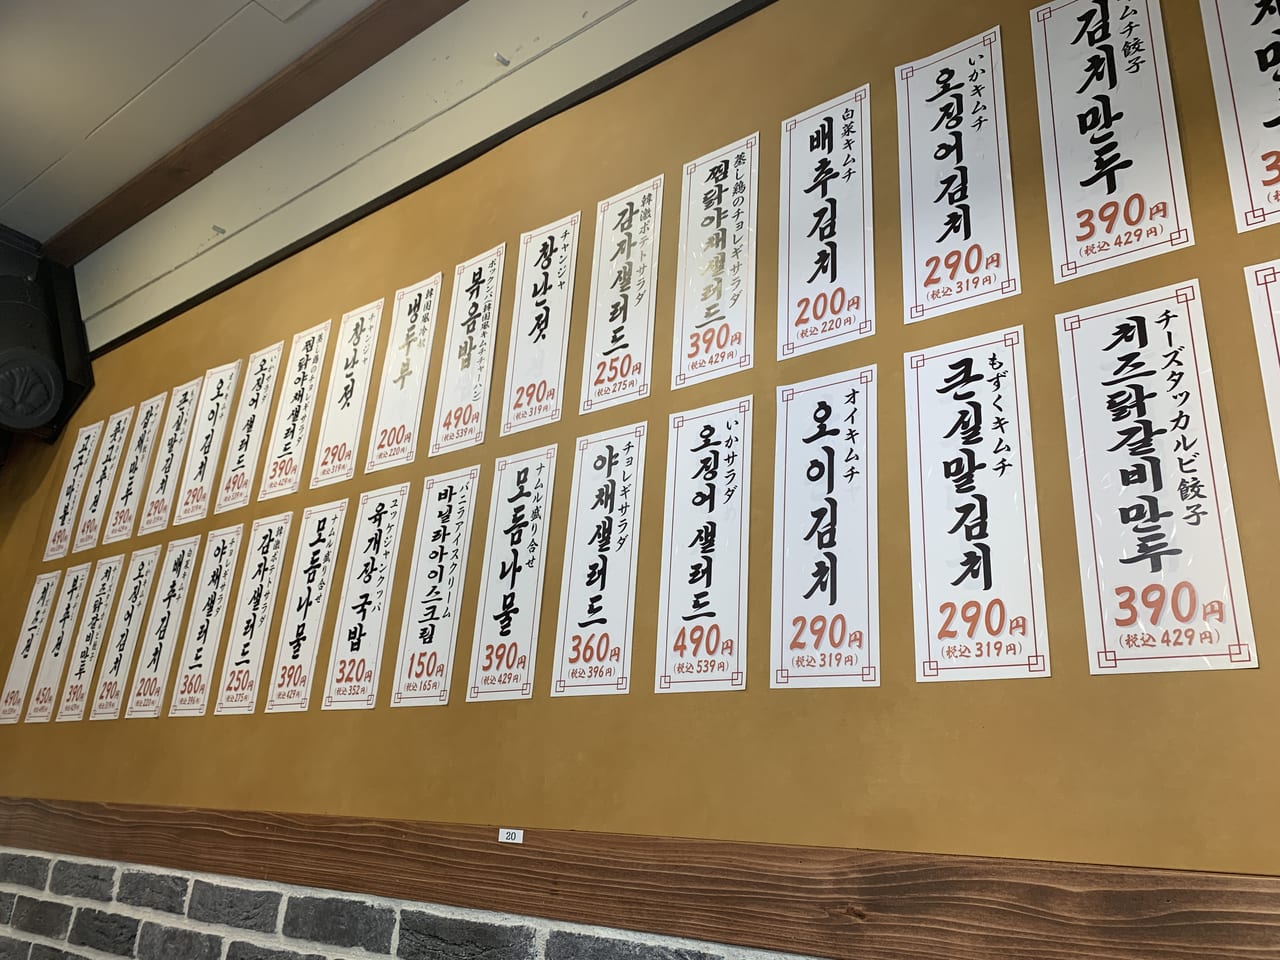 김치만두
キムチ餃子
390円
(税込 429円)
오징어김치
いかキムチ
290円
(税込 319円)
배추김치
白菜キムチ
200円
(税込 220円)
찜닭야채샐러드
蒸し鶏のチョレギサラダ
390円
(税込 429円)
감자샐러드
韓激ポテトサラダ
250円
(税込 275円)
창난젓
チャンジャ
290円
(税込 319円)
볶음밥
ポックンパ(韓国風キムチチャーハン)
490円
(税込 539円)
냉두부
韓国風冷奴
200円
(税込 220円)
창난젓
チャンジャ
290円
(税込 319円)
찜닭야채샐러드
蒸し鶏のチョレギサラダ
390円
(税込 429円)
오징어샐러드
いかサラダ
490円
(税込 539円)
오이김치
オイキムチ
290円
(税込 319円)
큰실말김치
290円
(税込 319円)
김치만두
390円
490円
490円
치즈닭갈비만두
チーズタッカルビ餃子
390円
(税込 429円)
큰실말김치
もずくキムチ
290円
(税込 319円)
오이김치
オイキムチ
290円
(税込 319円)
오징어샐러드
いかサラダ
490円
(税込 539円)
야채샐러드
チョレギサラダ
360円
(税込 396円)
모듬나물
ナムル盛り合せ
390円
(税込 429円)
바닐라아이스크림
バニラアイスクリーム
150円
(税込 165円)
육개장국밥
ユッケジャンクッパ
320円
(税込 352円)
모듬나물
ナムル盛り合せ
390円
(税込 429円)
감자샐러드
韓激ポテトサラダ
250円
(税込 275円)
야채샐러드
チョレギサラダ
360円
(税込 396円)
배추김치
白菜キムチ
200円
(税込 220円)
오징어김치
いかキムチ
290円
(税込 319円)
치즈닭갈비만두
390円
부추전
450円
490円
20